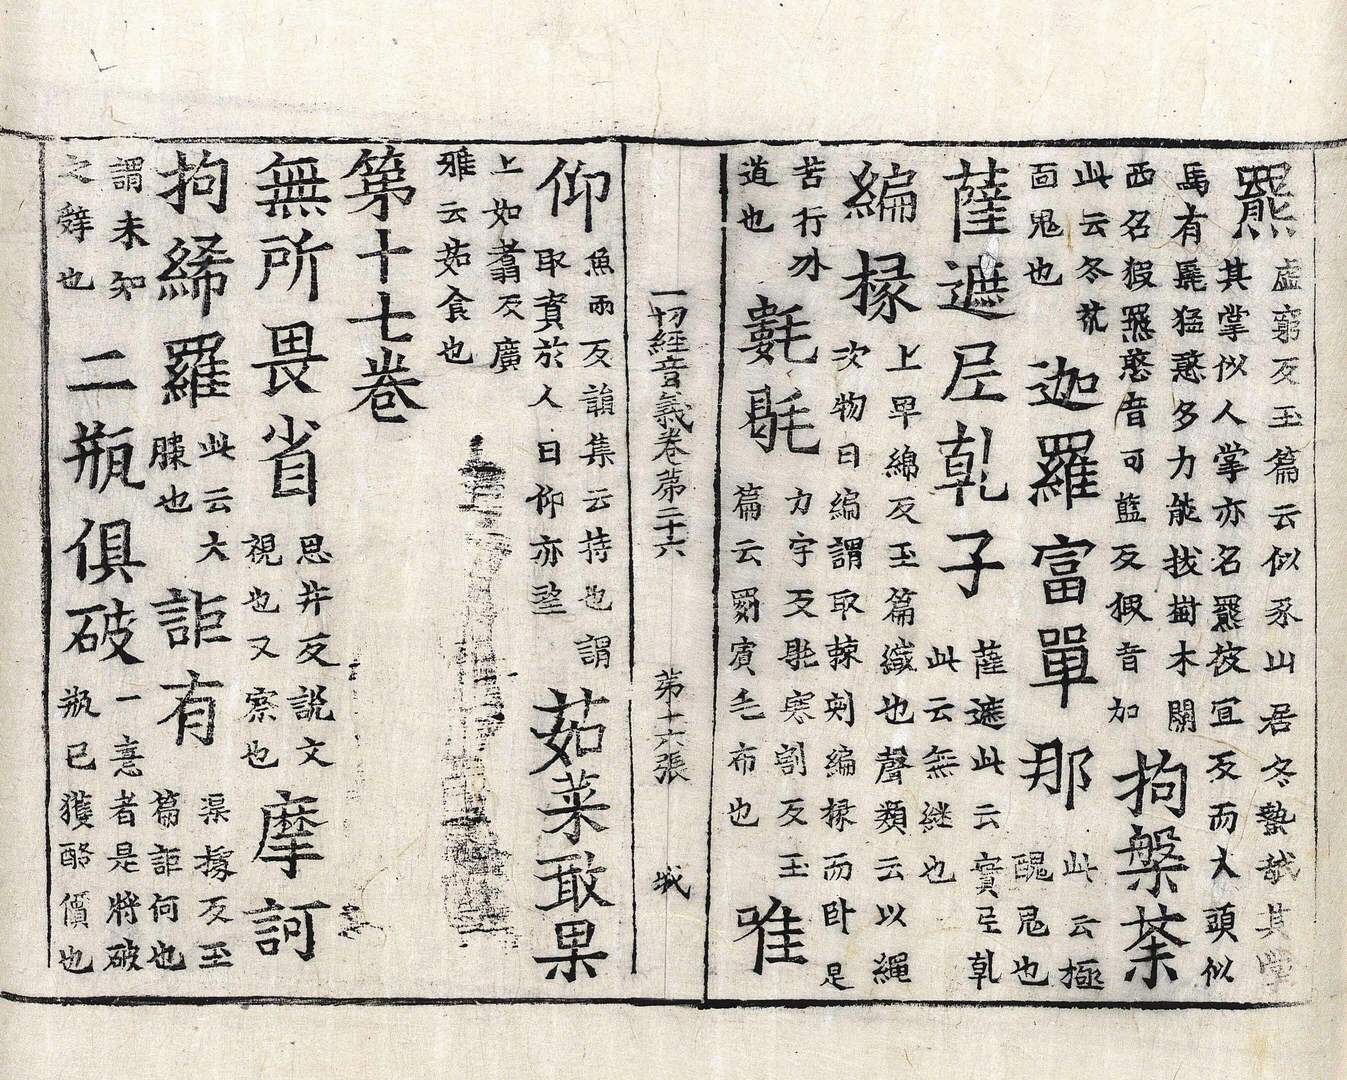 羆虛窮反玉篇云似豕山居冬蟄舐其掌
其掌似人掌亦名羆彼宜反而人頭似
馬有髦猛憨多力能拔樹木關
西名猳羆憨音可藍反猳音加
拘槃荼
此云冬苽
面鬼也
迦羅富單那
此云極
醜鬼也
薩遮尼乾子
薩遮此云實尼乾
此云無継也
編椽
上卑綿反玉篇織也聲類云以繩
次物曰編謂取棘刺編椽而卧是
苦行外
道也
氀毼
力宇反毼寒割反玉
篇云罽賓毛布也
雅
一切經音義卷第二十六 第十六張 城
仰
魚兩反韻集云持也謂
取資於人曰仰亦望
茹菜敢果
上如翥反廣
雅云茹食也
第十七卷
無所畏省
思井反說文
視也又察也
摩訶
拘絺羅
此云大
膝也
詎有
渠據反玉
篇詎何也
謂未知
之辝也
二瓶俱破
一意者是將破
瓶已獲酪價也